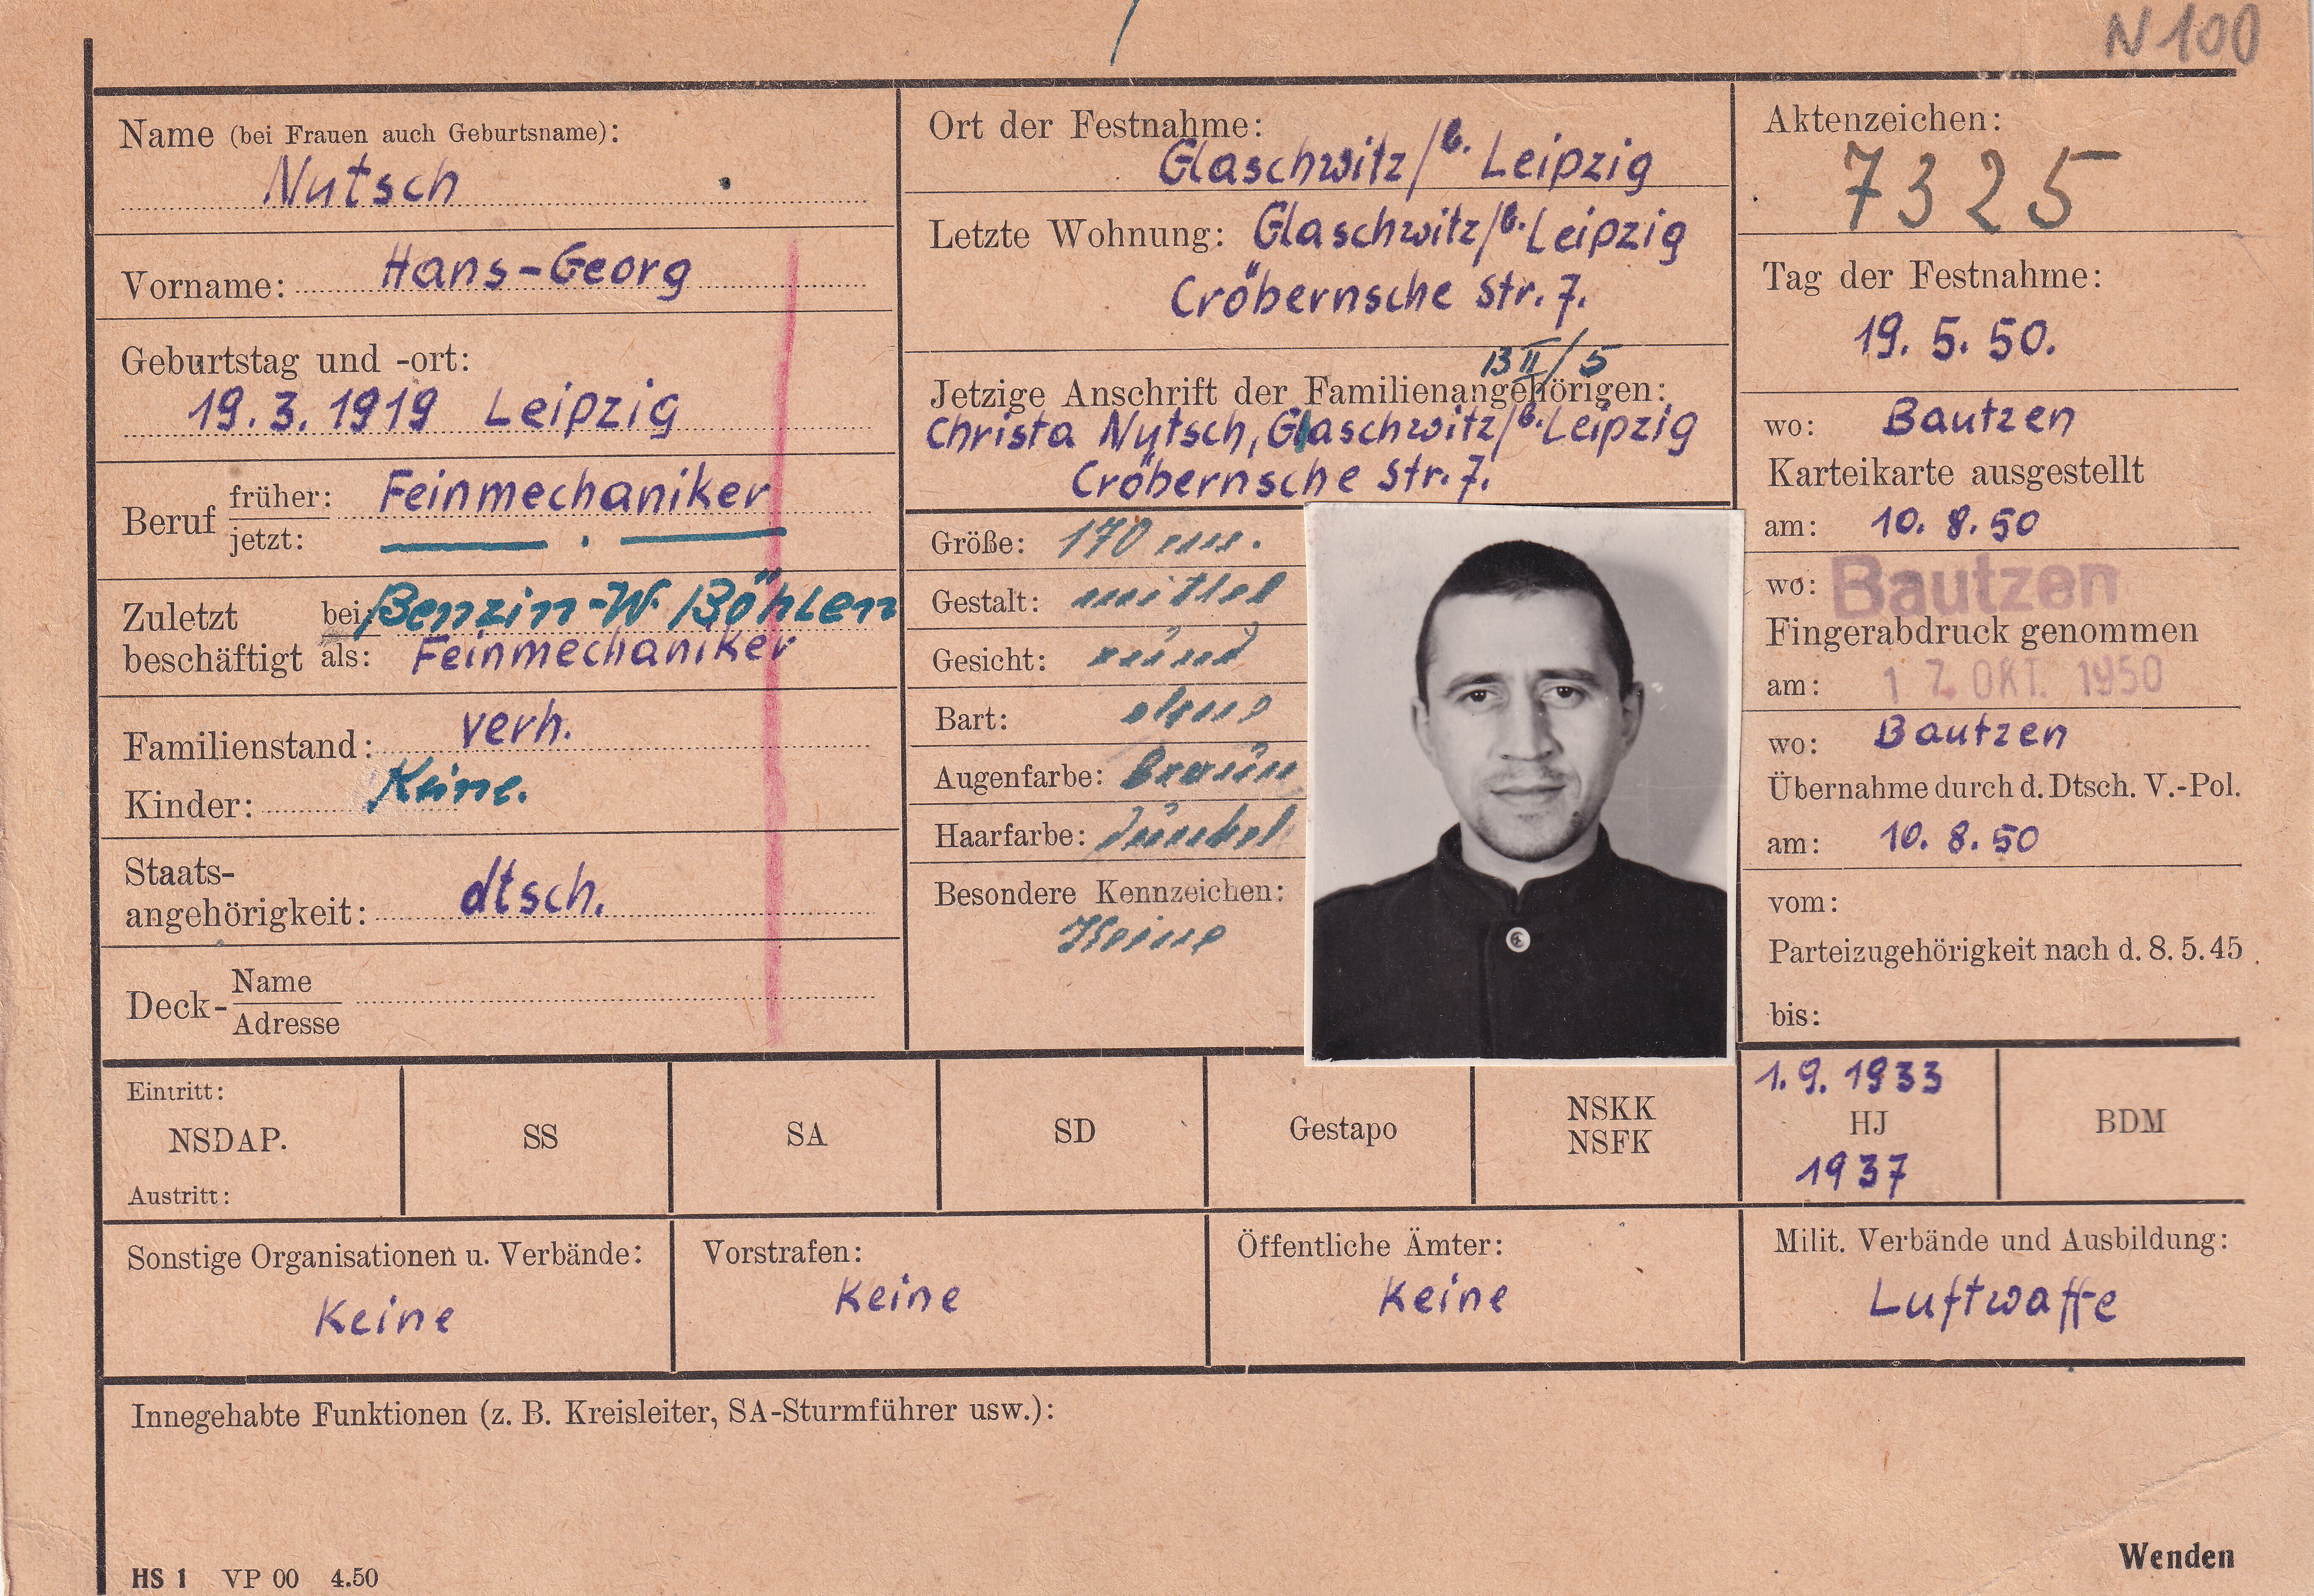 N 100
Name (bei Frauen auch Geburtsname):
Nutsch
Vorname: Hans-Georg
Geburtstag und -ort:
19.3.1919 Leipzig
Beruf früher: Feinmechaniker
jetzt:
Zuletzt beschäftigt bei: Benzin-W. Böhlen
als: Feinmechaniker
Familienstand: verh.
Kinder: Keine.
Staats-
angehörigkeit: dtsch.
Deck- Name
Adresse
Ort der Festnahme:
Glaschwitz/b. Leipzig
Letzte Wohnung: Glaschwitz/b. Leipzig
Cröbernsche Str. 7.
13 II/5
Jetzige Anschrift der Familienangehörigen:
Christa Nutsch, Glaschwitz/b. Leipzig
Cröbernsche Str. 7.
Größe: 170
Gestalt: mittel
Gesicht: rund
Bart: ohne
Augenfarbe: braun
Haarfarbe: dunkel
Besondere Kennzeichen:
Keine
Aktenzeichen:
7325
Tag der Festnahme:
19. 5. 50.
wo: Bautzen
Karteikarte ausgestellt
am: 10. 8. 50
wo: Bautzen
Fingerabdruck genommen
am: 17. OKT. 1950
wo: Bautzen
Übernahme durch d. Dtsch. V.-Pol.
am: 10. 8. 50
vom:
Parteizugehörigkeit nach d. 8. 5. 45
bis:
Eintritt:
NSDAP.
Austritt:
SS
SA
SD
Gestapo
NSKK
NSFK
1. 9. 1933
HJ
1937
BDM
Sonstige Organisationen u. Verbände:
Keine
Vorstrafen:
Keine
Öffentliche Ämter:
Keine
Milit. Verbände und Ausbildung:
Luftwaffe
Innegehabte Funktionen (z. B. Kreisleiter, SA-Sturmführer usw.):
HS 1 VP 00 4.50
Wenden